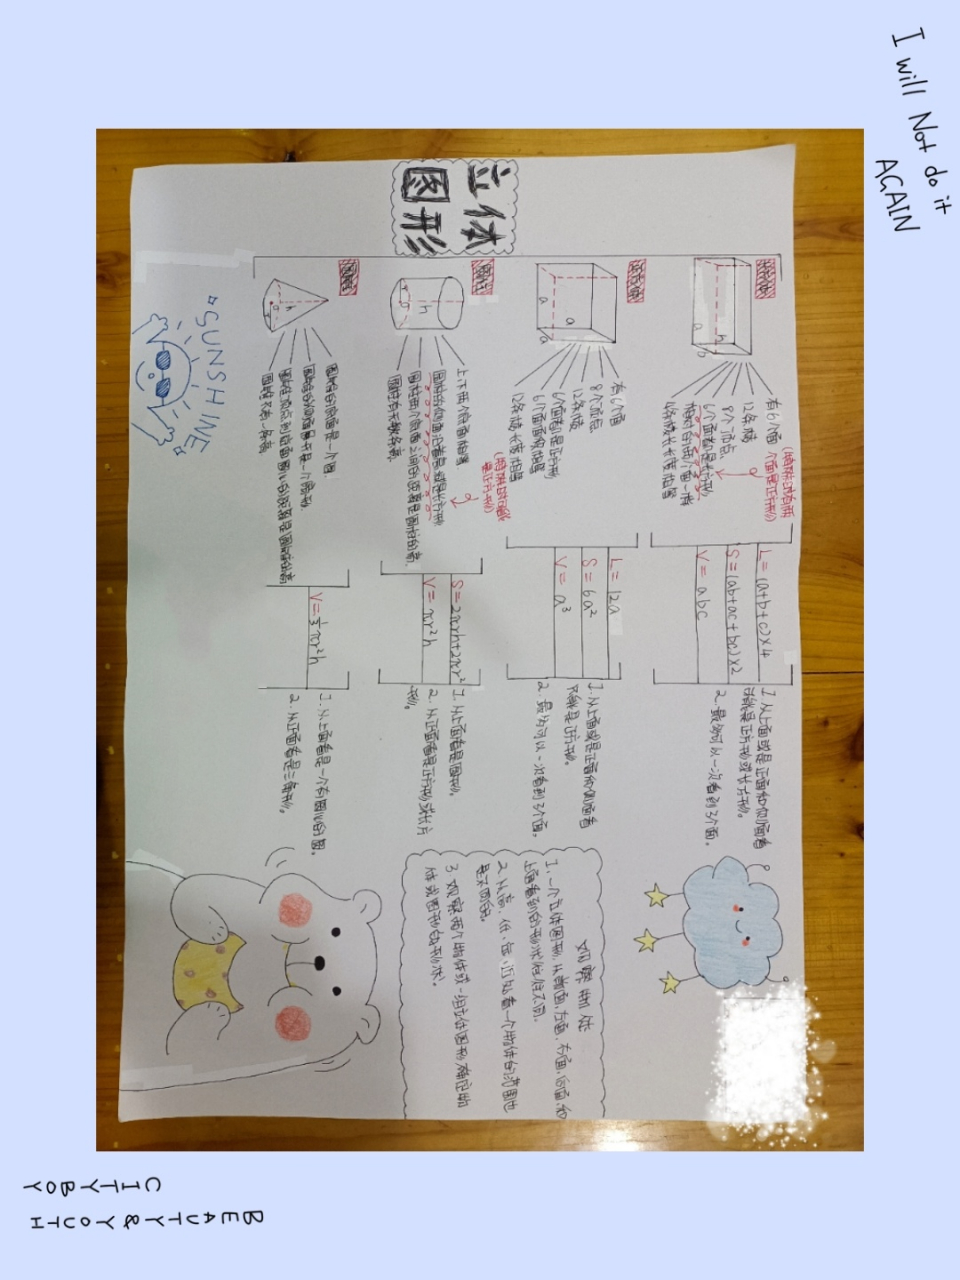 I will Not do it
AGAIN
立体
图形
长方体
h
a
b
有6个面
(特殊时有两
个面是正方形)
12条棱
8个顶点
6个面都是长方形
相对的两个面一样
4条棱长长度相等
L=(a+b+c)×4
S=(ab+ac+bc)×2
V=abc
1. 从上面或是正面和侧面看
可能是正方形或长方形。
2. 最多可以一次看到3个面。
正方体
a
a
a
有6个面
8个顶点
12条棱
6个面都是正方形
6个面面积相等
12条棱长度相等
L=12a
S=6a²
V=a³
1. 从上面或是正面和侧面看
只能是正方形。
2. 最多可以一次看到3个面。
圆柱
h
上下两个底面相等
圆柱的侧面沿着高剪是长方形
(特殊时候
是正方形)
圆柱两个底面之间的距离是圆柱的高
圆柱有无数条高。
S=2πrh+2πr²
V=πr²h
1. 从上面看是圆形。
2. 从正面看是正方形或长方
形。
圆锥
h
圆锥的底面是一个圆
圆锥的侧面展开是一个扇形
圆锥顶点到底面圆心的距离是圆锥的高
圆锥只有一条高
V=⅓πr²h
1. 从上面看是一个有圆心的圆。
2. 从正面看是三角形。
观察物体
1. 一个立体图形，从前面、左面、右面、后面和
上面看到的形状往往不同。
2. 从高、低、远、近处看一个物体的范围也
是不同的。
3. 观察两个物体或一组立体图形，确定物
体或图形的形状。
SUNSHINE
CITYBOY
BEAUTY&YOUTH